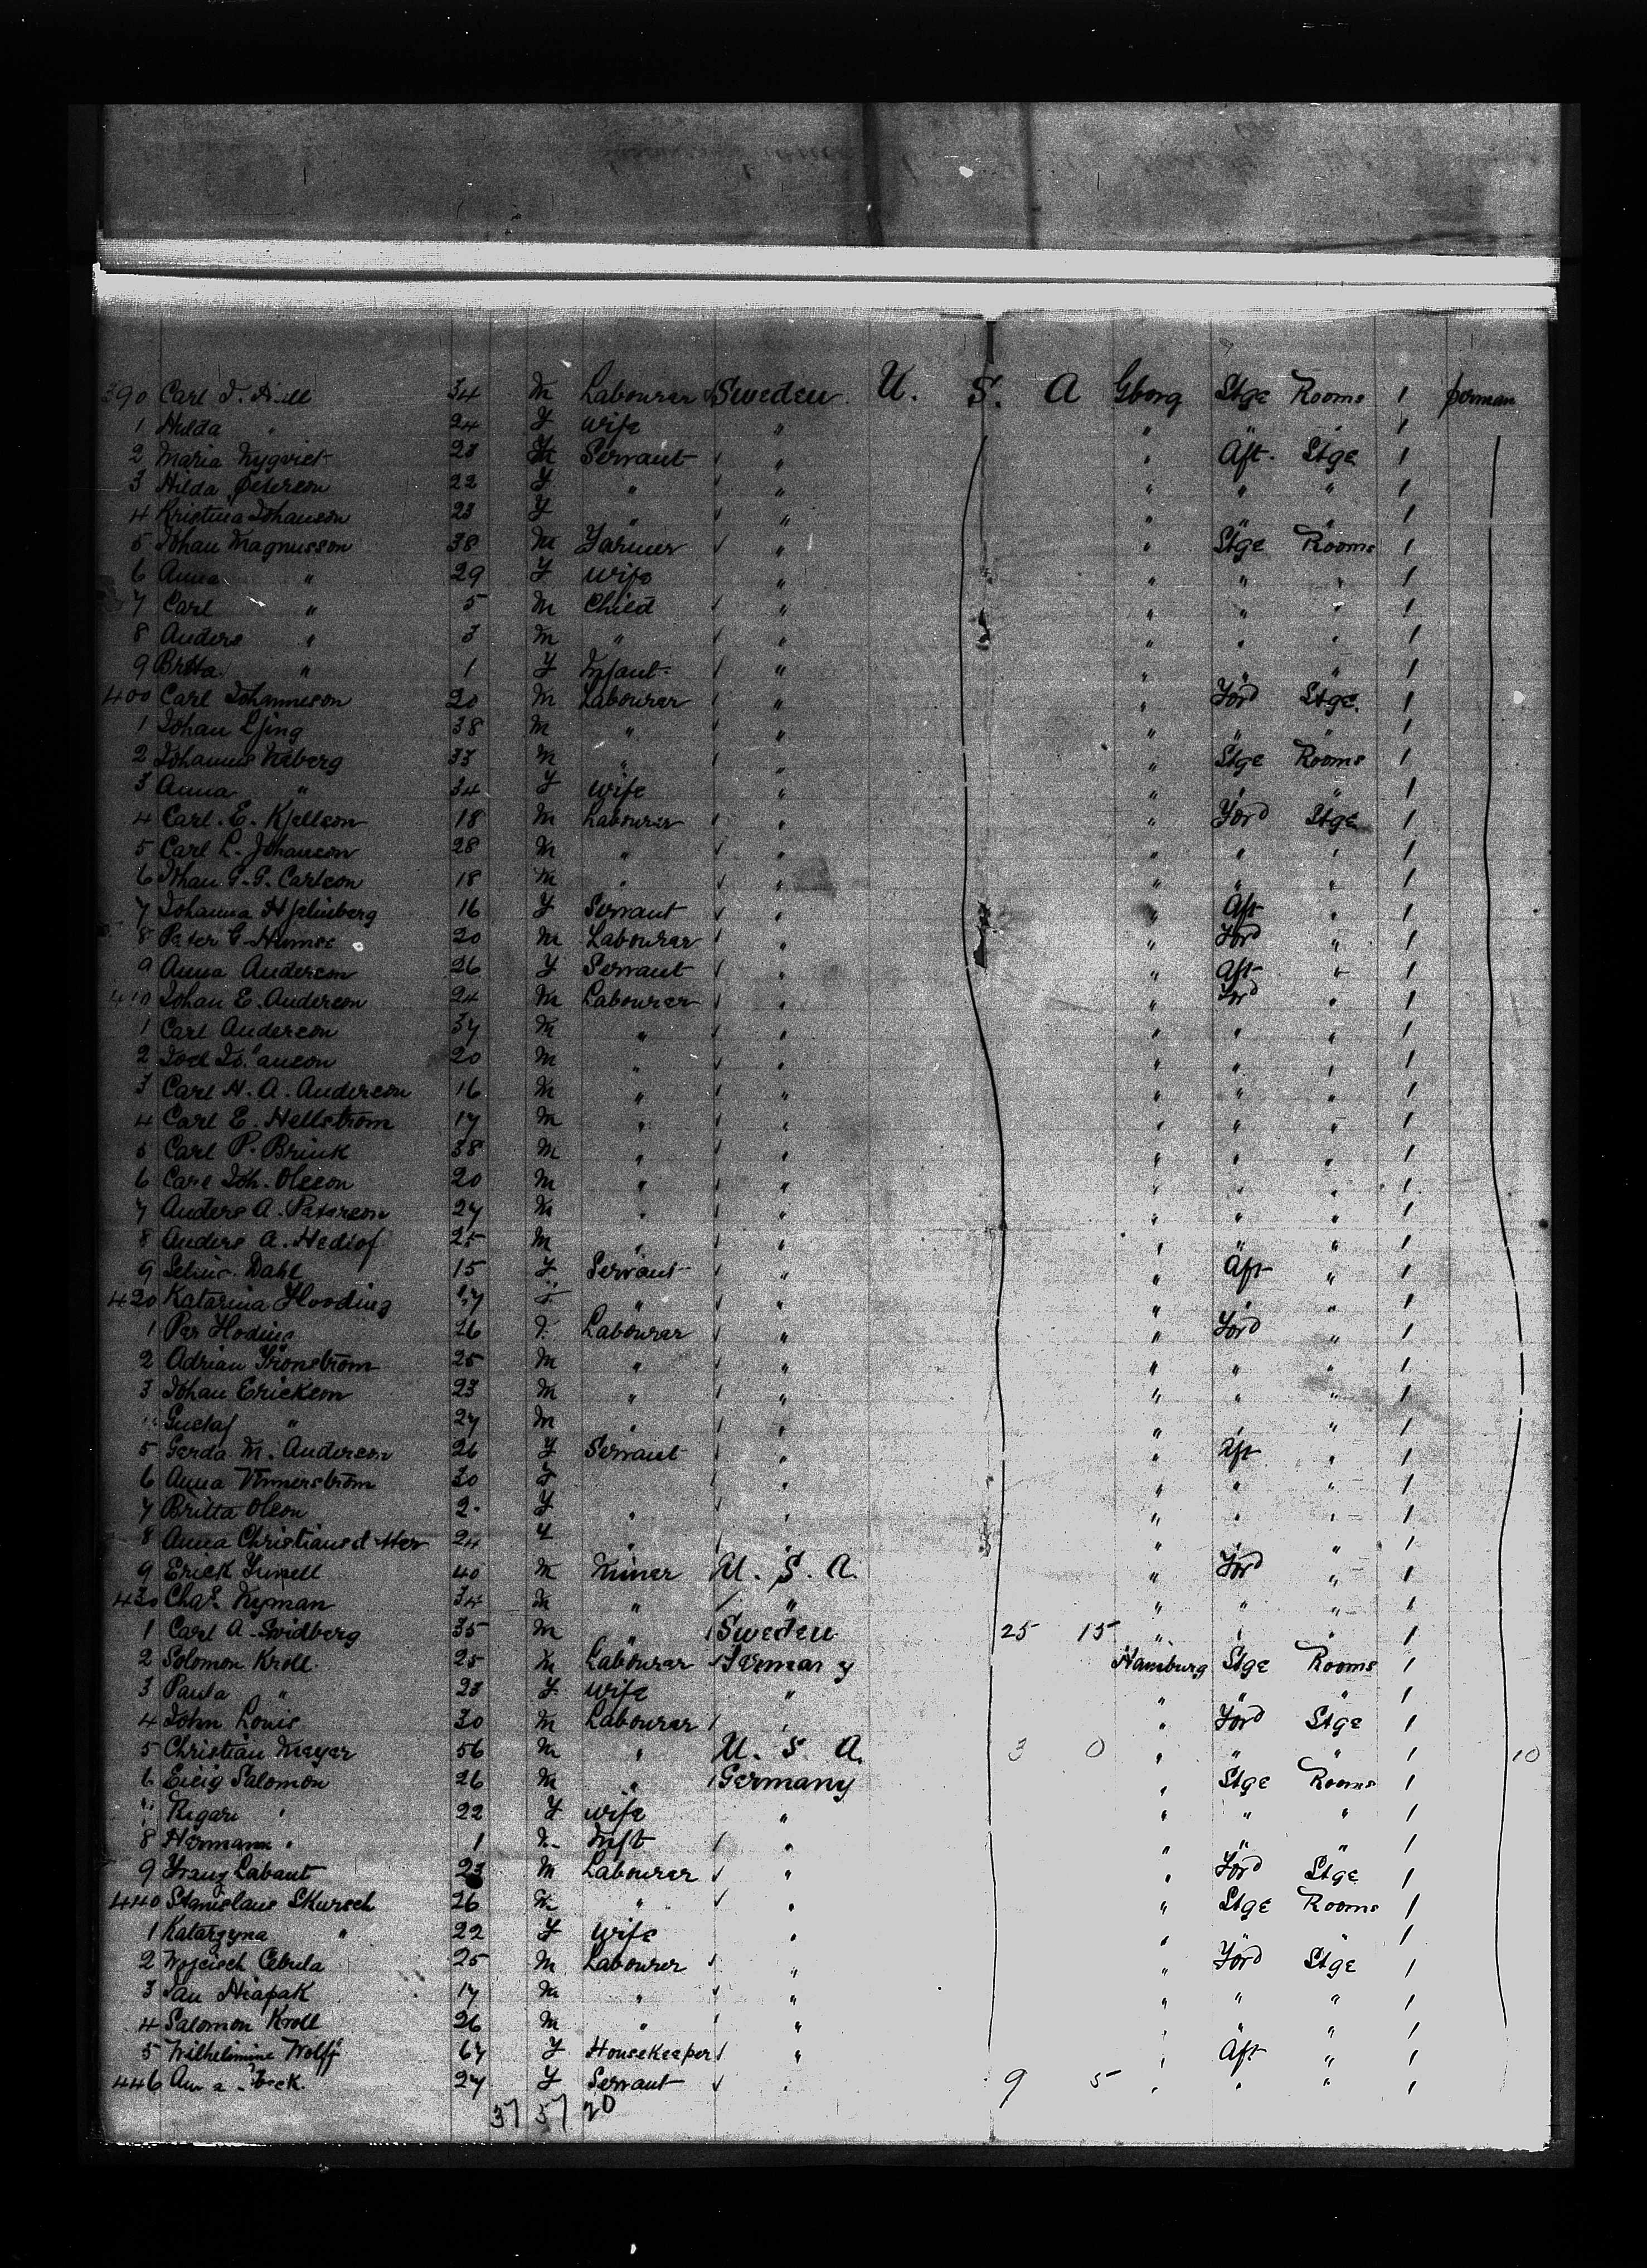 390 Carl J. 34 M Labourer Sweden U. S. A Gborg Stge Rooms 1 perman
1 Hilda " 24 F wife " " " " 1
2 Maria Nyqvist 23 F Servant " " Aft. Stge 1
3 Hilda Peterson 22 F " " " " " 1
4 Kristina Johanson 23 F " " " " " 1
5 Johan Magnusson 38 M Farmer " " Stge Rooms 1
6 Anna " 29 F wife " " " " 1
7 Carl " 5 M Child " " " " 1
8 Anders " 3 M " " " " " 1
9 Britta " 1 F Infant " " " " 1
400 Carl Johanneson 20 M Labourer " " Ford Stge. 1
1 Johan Ljing 38 M " " " " " 1
2 Johannes 33 M " " " Stge Rooms 1
3 Anna " 34 F wife " " " " 1
4 Carl. E. Kjellson 18 M Labourer " " Ford Stge 1
5 Carl L. Johanson 28 M " " " " " 1
6 Johan G. G. Carlson 18 M " " " " " 1
7 Johanna Hjelmberg 16 F Servant " " Aft " 1
8 Peter G. 20 M Labourer " " Ford " 1
9 Anna Anderson 26 F Servant " " Aft " 1
410 Johan E. Anderson 24 M Labourer " " Ford " 1
1 Carl Anderson 37 M " " " " " 1
2 20 M " " " " " 1
3 Carl H. A. Anderson 16 M " " " " " 1
4 Carl E. Hellstrom 17 M " " " " " 1
5 Carl P. Brink 38 M " " " " " 1
6 Carl Joh. Olsson 20 M " " " " " 1
7 Anders A. Peterson 27 M " " " " " 1
8 Anders A. Hedlof 25 M " " " " " 1
9 Dahl 15 F Servant " " Aft " 1
420 Katarina Hooding 17 F " " " " " 1
1 Per Hoding 26 Labourer " " Ford " 1
2 Adrian Fronstrom 25 M " " " " " 1
3 Johan Erickson 23 M " " " " " 1
Gustaf " 27 M " " " " " 1
5 Gerda M. Anderson 26 F Servant " " Aft " 1
6 Anna 30 F " " " " " 1
7 Britta Olson F " " " " " 1
8 Anna Christiansdotter 24 F " " " " " 1
9 Erick 40 M Miner U. S. A. " Ford " 1
430 Chas. Nyman M " " " " " 1
1 Carl A. Svidberg 35 M " Sweden 25 15 " " " 1
2 Solomon Kroll. 25 M Labourer Germany Hamburg Stge Rooms 1
3 Paula " 23 F wife " " " " 1
4 John Louis 30 M Labourer " " Ford Stge 1
5 Christian Meyer 56 M " U. S. A. 3 0 " " " 1 10
6 Eicig Salomon 26 M " Germany " Stge Rooms 1
" 22 F wife " " " " 1
8 Hermann " 1 M Inft " " " " 1
9 Franz Labant 23 M Labourer " " Ford Stge 1
440 Stanislaus Skursch 26 M " " " Stge Rooms 1
1 Katarzyna " 22 F wife " " " " 1
2 Wojciech Cebula 25 M Labourer " " Ford Stge 1
3 Jan 17 M " " " " " 1
4 Salomon Kroll 26 M " " " " " 1
5 Wilhelmine Wolff 67 F Housekeeper " " Aft " 1
446 27 F Servant " 9 5 " " " 1
37 57 20